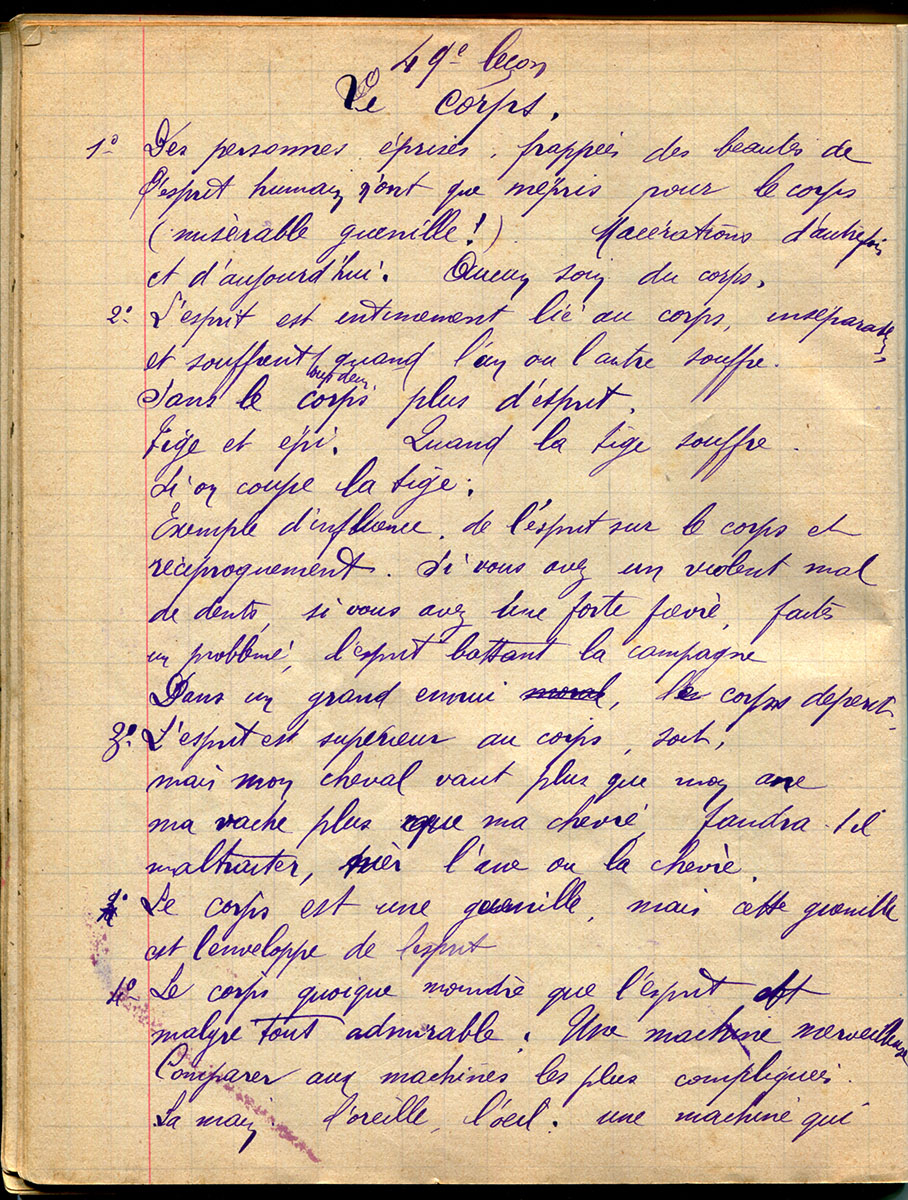 49e leçon
Le corps.
1° Des personnes éprises, frappées des beautés de
l'esprit humain n'ont que mépris pour le corps
(misérable guenille!). Macérations d'autrefois
et d'aujourd'hui. Aucun soin du corps.
2° L'esprit est intimement lié au corps, inséparables
et souffrent quand l'un ou l'autre souffre.
tous deux
Sans le corps plus d'esprit.
Tige et épi. Quand la tige souffre.
Si on coupe la tige.
Exemple d'influence de l'esprit sur le corps et
réciproquement. Si vous avez un violent mal
de dents, si vous avez une forte fièvre, faites
un problème, l'esprit battant la campagne
Dans un grand ennui moral, le corps dépérit.
3° L'esprit est supérieur au corps, soit,
mais mon cheval vaut plus que mon ane
ma vache plus que ma chèvre, faudra-t-il
maltraiter, tuer l'ane ou la chèvre.
Le corps est une guenille, mais cette guenille
est l'enveloppe de l'esprit
4° Le corps quoique moindre que l'esprit est
malgré tout admirable. Une machine merveilleuse
Comparer aux machines les plus compliquées.
La main l'oreille, l'oeil. une machine qui